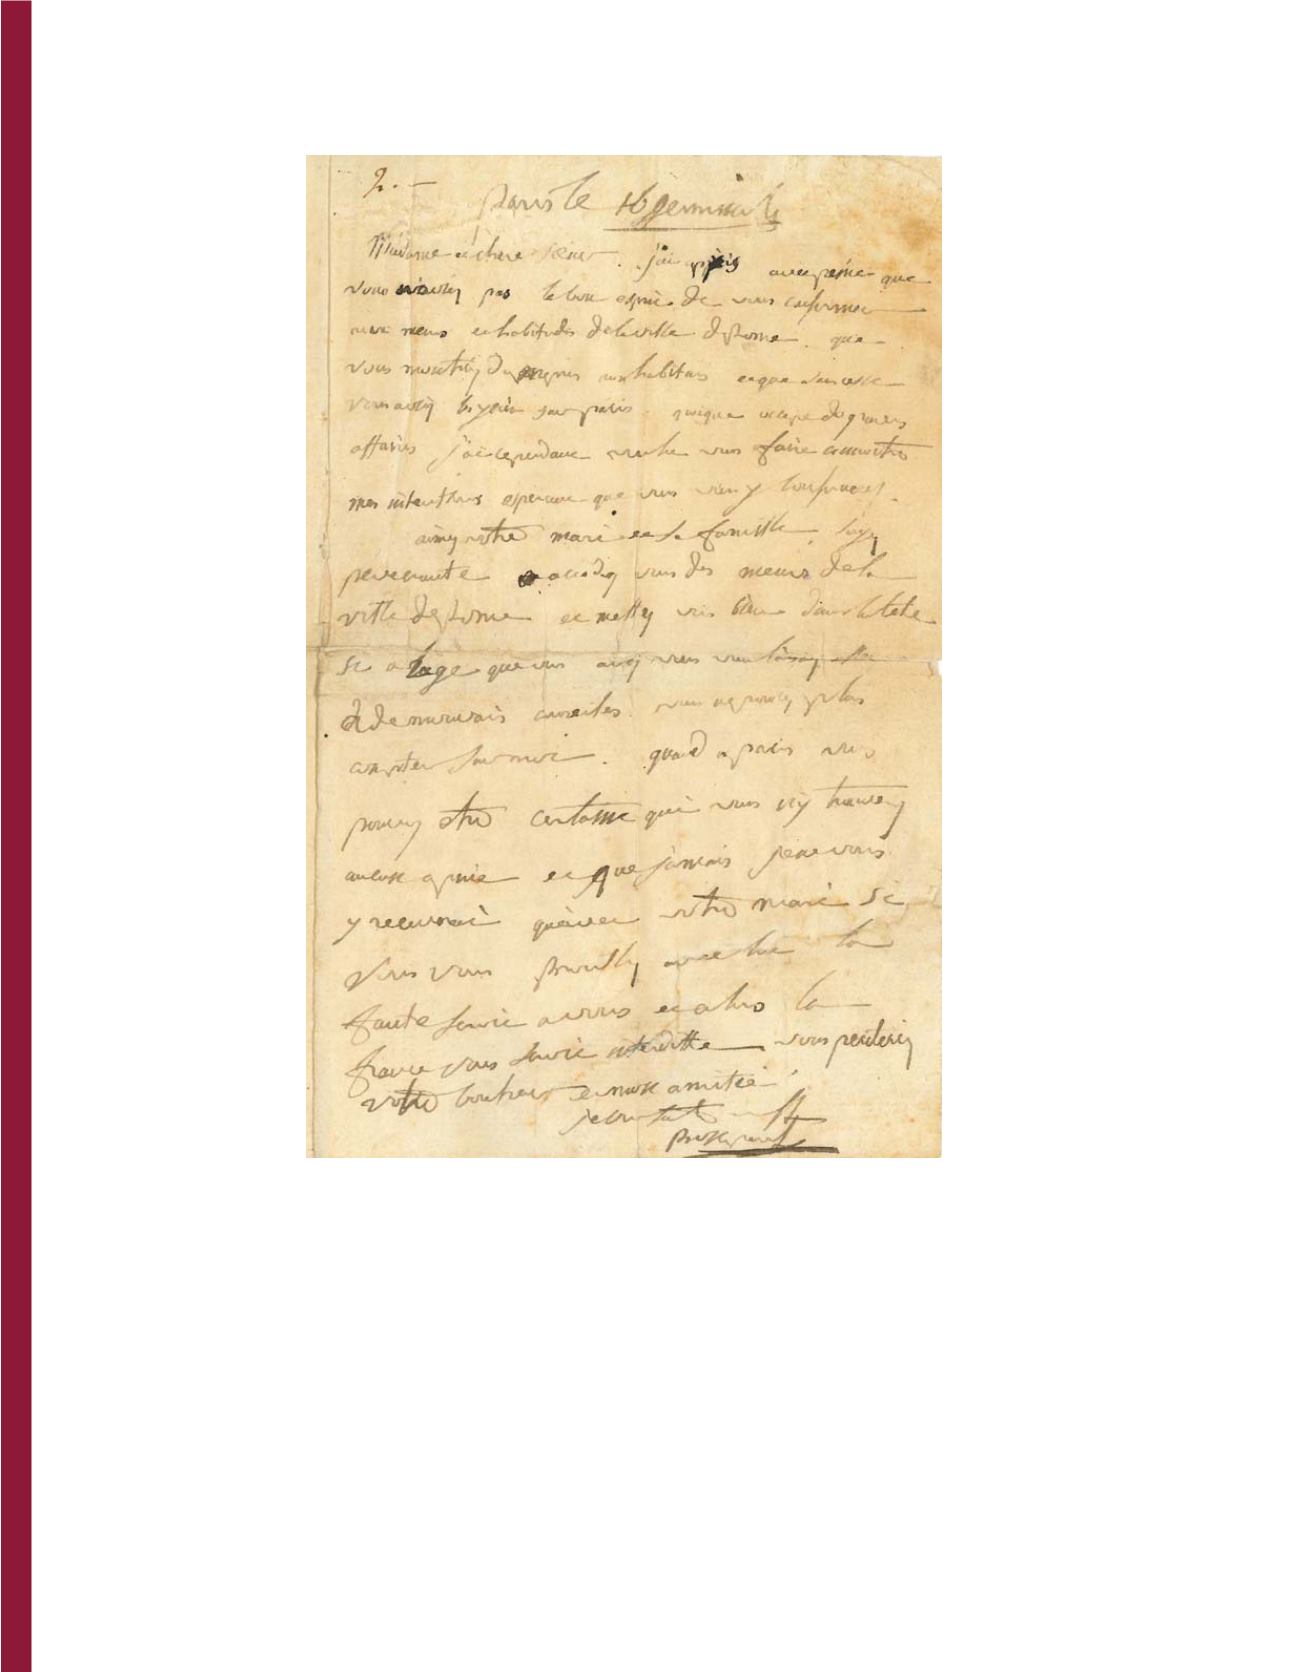 2. —
Paris le 16 germinal
Madame et chere sœur . j'ai appris avec peine que
vous n'aviez pas le bon esprit de vous conformer
aux meurs et habitudes de la ville de Rome . que
vous montriez du mepris aux habitans et que sans cesse
vous aviez les yeux sur paris . quoique occupé de grandes
affaires j'ai cependant voulu vous faire connoitre
mes intentions esperant que vous vous y conformerez .
aimez votre mari et sa famille . soyez
prevenante accomodez vous des meurs de la
ville de Rome et mettez vous bien dans la tete
si a l'age que vous avez vous vous laissez aller
à de mauvais conseiles vous ne pouvez plus
compter sur moi . quand a paris vous
pouvez etre certaine que vous n'y trouverez
aucune apuie et que jamais je ne vous
y recevrai qu'avec votre mari si
vous vous brouillez avec lui la
faute serai a vous et alors la
france vous serai interditte vous perderiez
votre bonheur et mon amitié
Bonaparte